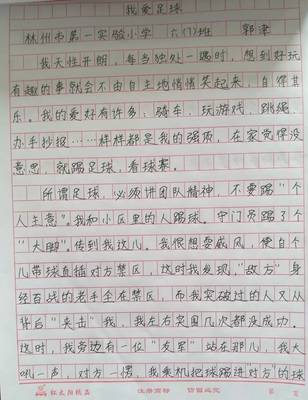 我爱足球
林州市第一实验小学 六(7)班 郭津
我天性开朗,每当独处一隅时,想到好玩
有趣的事就会不由自主地悄悄笑起来,自得其
乐。我的爱好有许多:骑车,玩游戏,跳绳,
办手抄报……样样都是我的强项,在家觉得没
意思,就踢足球,看球赛。
所谓足球,必须讲团队精神,不要踢“个
人主意”。我和小区里的人踢球。守门员踢了个
“大脚”。传到我这儿。我很想耍威风,便自个
儿带球直插对方禁区,这时我发现,“敌方”身
经百战的老手全在禁区,而我突破过的人又从
背后“夹击”我,我左右突围几次都没成功。
这时,我旁边有一位“友军”站在那儿,我大
吼一声,对方一愣,我乘机把球踢进对方的球
红太阳精品 注册商标 仿冒必究 第 页